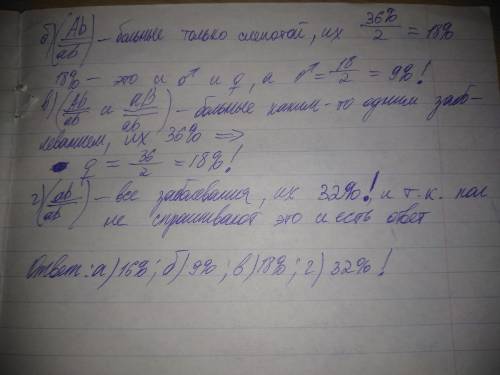 б) (Ab/ab) – больные только слепотой, их 36%/2 = 18%
18% – это и ♂ и ♀, а ♂ = 18/2 = 9%!
в) (Ab/ab и aB/ab) – больные каким-то одним забо-
леванием, их 36% =>
♀ = 36/2 = 18%!
г) (ab/ab) – все заболевания, их 32%! и т.к. пол
не спрашивают это и есть ответ
Ответ: а) 16%; б) 9%; в) 18%; г) 32%!